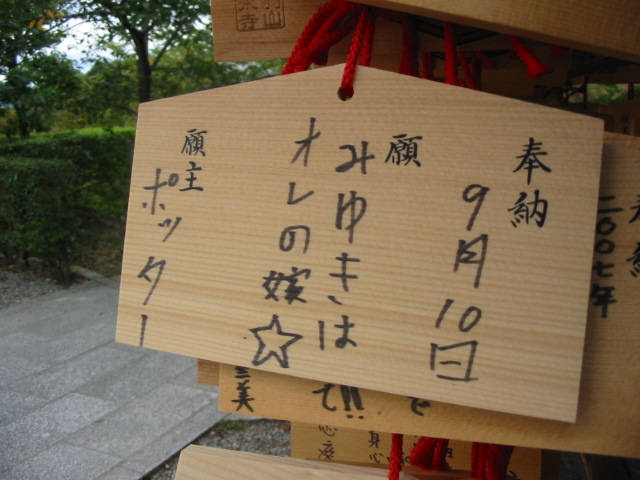 奉納
9月10日
願
みゆきは
オレの嫁☆
願主
ポッター
二〇〇七年